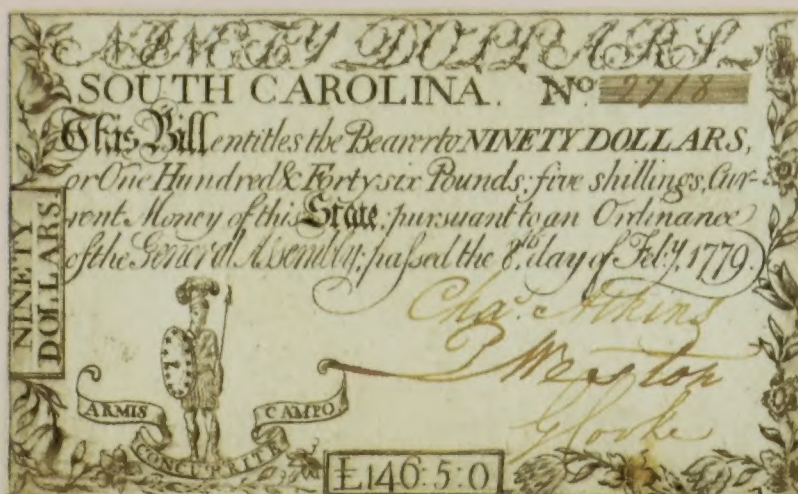 NINETY DOLLARS.
SOUTH CAROLINA. No. 2718
This Bill entitles the Bearer to NINETY DOLLARS,
or One Hundred & Forty six Pounds, five shillings, Cur-
rent Money of this State; pursuant to an Ordinance
of the General Assembly; passed the 8th. day of Feb:y. 1779.
NINETY
DOLLARS.
Chas. Atkins
P Weston
G Cooke
ARMIS CAMPO
CONCURRITE
£146:5:0